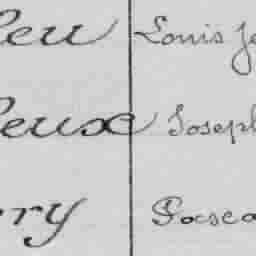 leu Louis Je
leux Joseph
rry Pasca